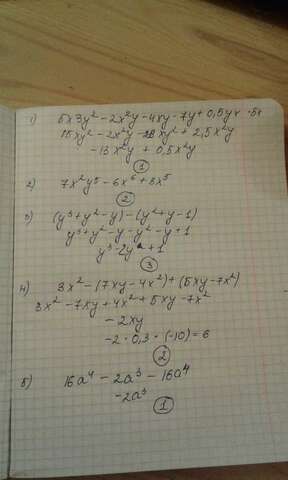 1) 5x3y² - 2x²y - 4xy · 7y + 0,5yx · 5x
15xy² - 2x²y - 28xy² + 2,5x²y
- 13x²y + 0,5x²y
①
2) 7x²y⁵ - 6x⁶ + 8x⁵
②
3) (y³ + y² - y) - (y² + y - 1)
y³ + y² - y - y² - y + 1
y³ - 2y + 1
③
4) 3x² - (7xy - 4x²) + (5xy - 7x²)
3x² - 7xy + 4x² + 5xy - 7x²
- 2xy
- 2 · 0,3 · (-10) = 6
②
5) 16a⁴ - 2a³ - 16a⁴
- 2a³
①